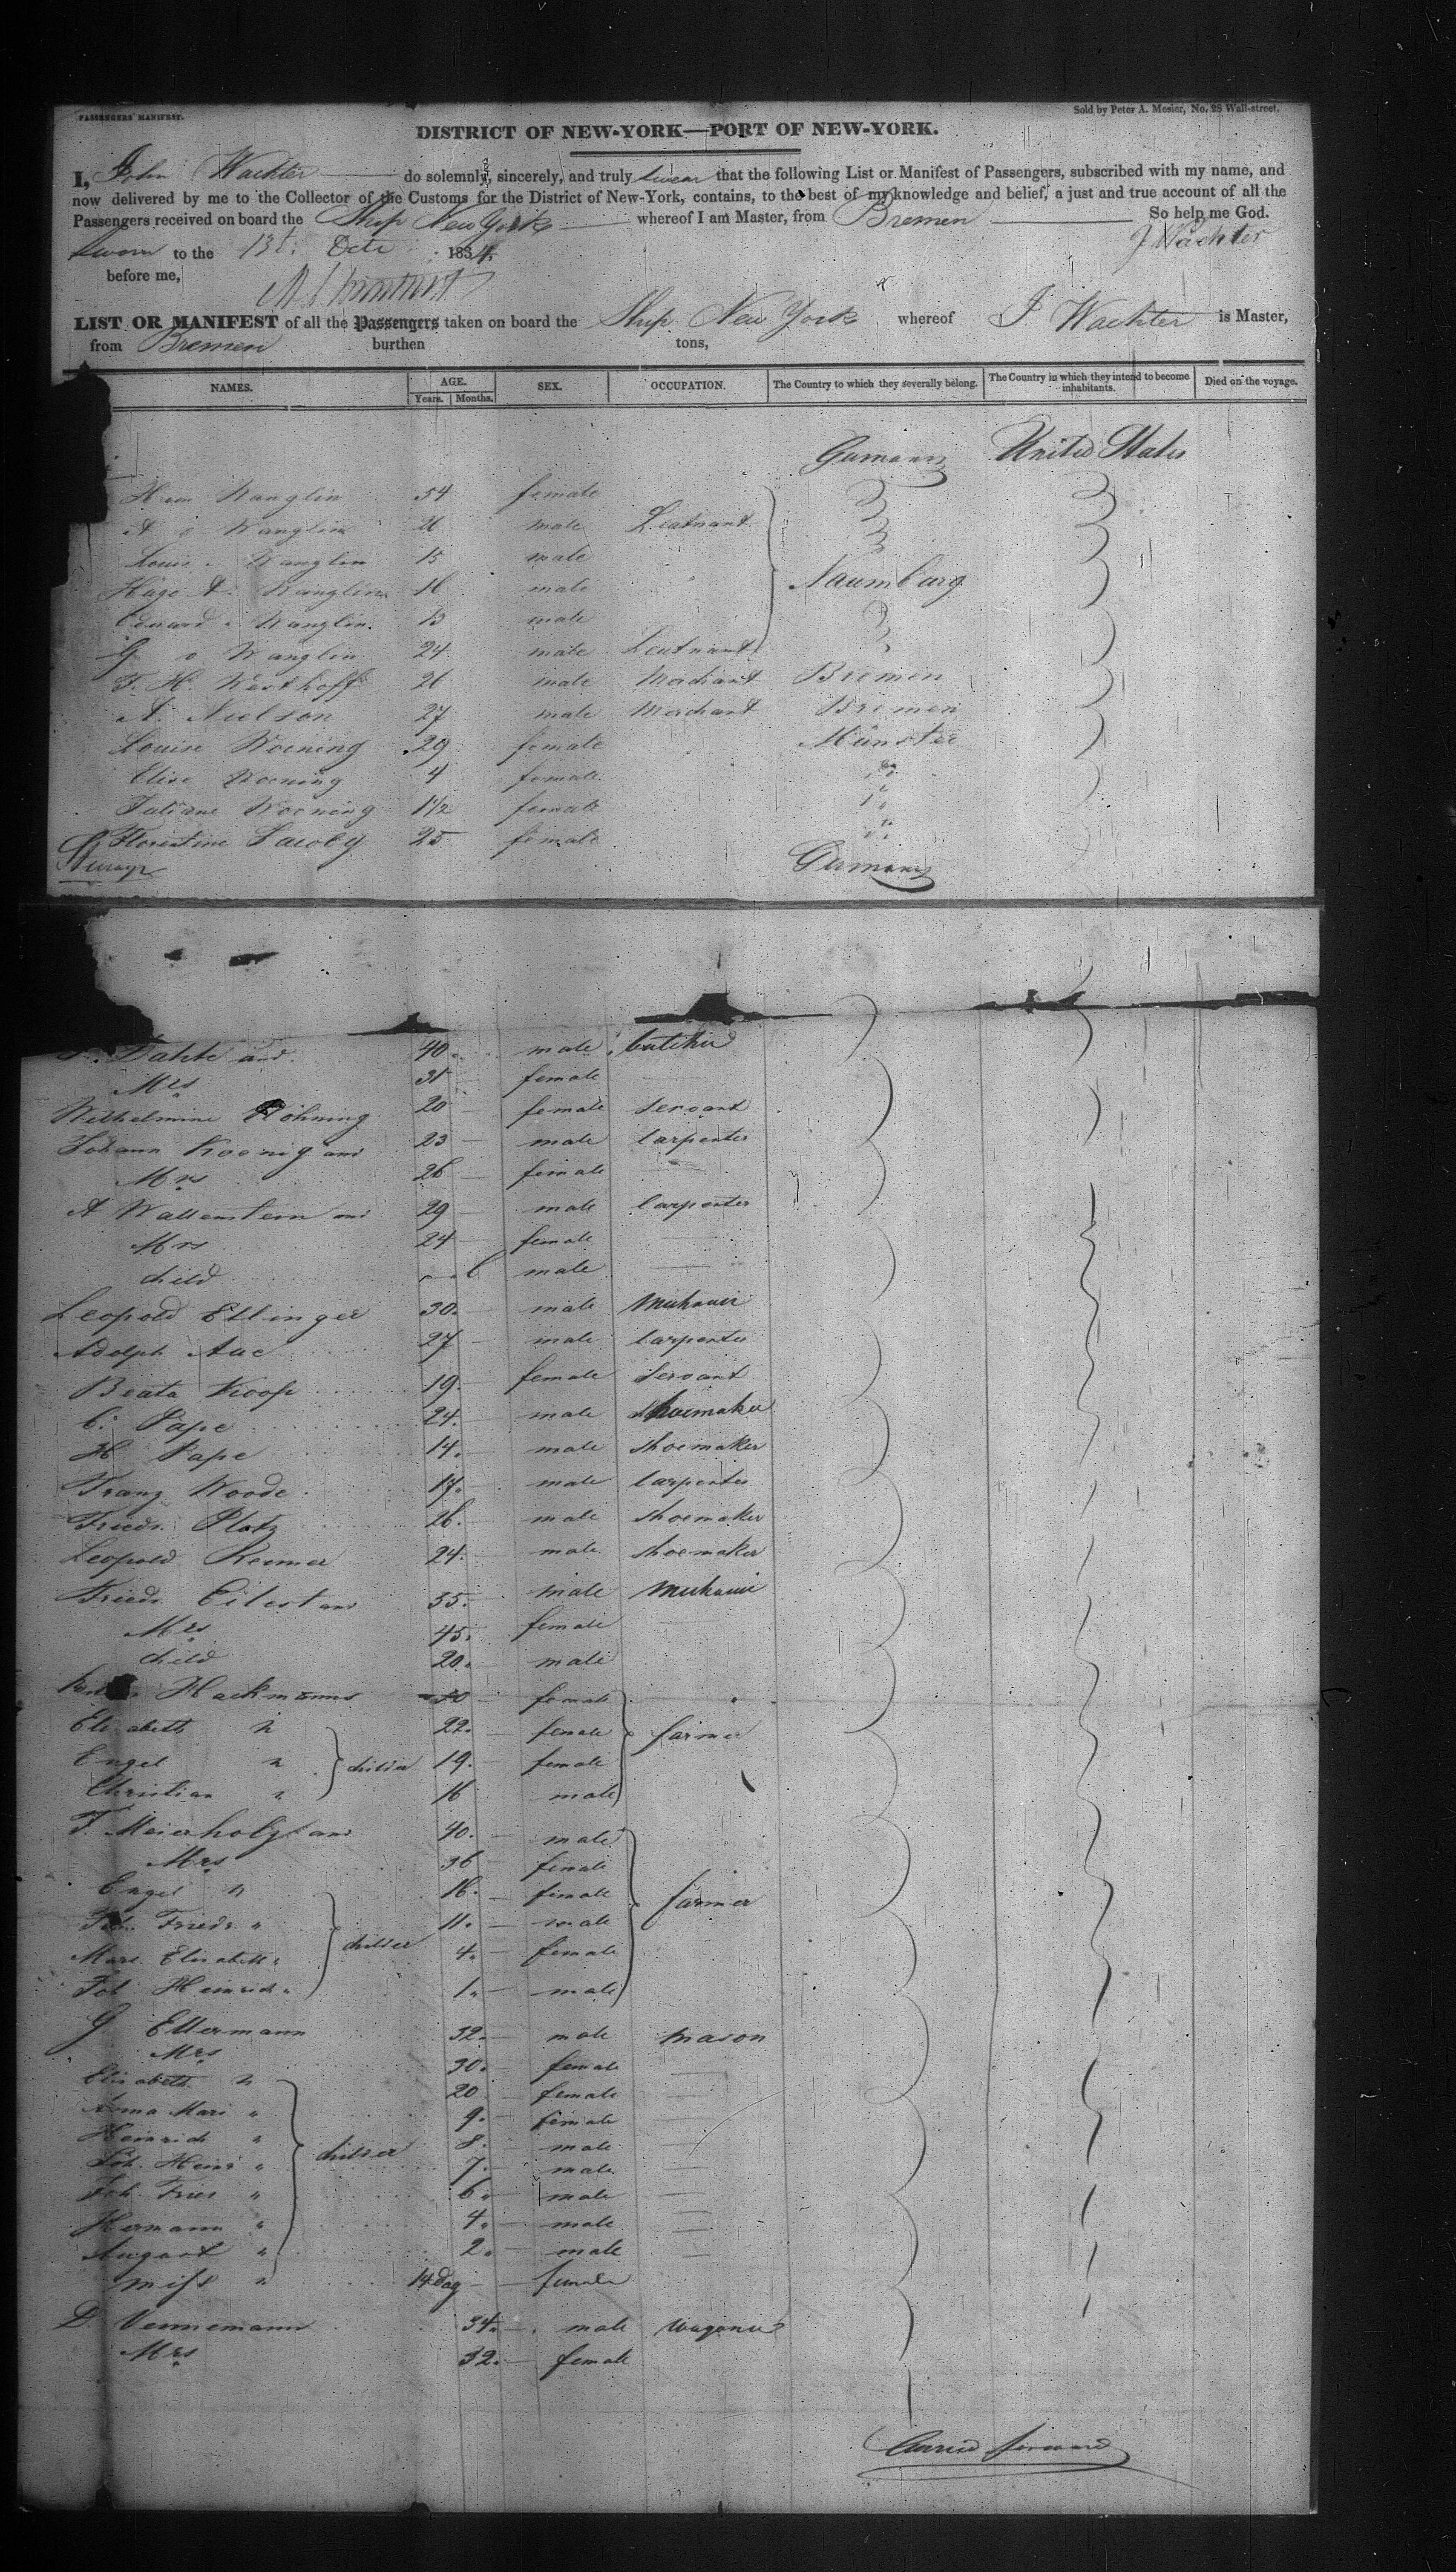 PASSENGERS' MANIFEST.
Sold by Peter A. Mesier, No. 28 Wall-street.
DISTRICT OF NEW-YORK—PORT OF NEW-YORK.
I, John Wachter do solemnly, sincerely, and truly swear that the following List or Manifest of Passengers, subscribed with my name, and
now delivered by me to the Collector of the Customs for the District of New-York, contains, to the best of my knowledge and belief, a just and true account of all the
Passengers received on board the Ship New York whereof I am Master, from Bremen So help me God.
Sworn to the 1834. J Wachter
before me,
LIST OR MANIFEST of all the Passengers taken on board the Ship New York whereof J Wachter is Master,
from Bremen burthen tons,
NAMES. AGE. Years. Months. SEX. OCCUPATION. The Country to which they severally belong. The Country in which they intend to become inhabitants. Died on the voyage.
Germany United States
Wanglin 54 female
A v Wanglin 26 male Lieutnant
Louis Wanglin 15 male
Hugo A. Wanglin 16 male Naumburg
Eduard Wanglin. 13 male
G v Wanglin 24 male Lieutnant
F. H. Westhoff 26 male Merchant Bremen
A. Nielson 27 male Merchant Bremen
Louise Woening 29 female Münster
Elise Woening 4 female
Juliane Woening 1½ female
Florentine Jacoby 25 female
Steerage Germany
Dahte and 40 male butcher
Mrs 31 female
Wilhelmine Köhning 20 female servant
Johann Koenig and 23 male carpenter
Mrs 26 female
A Wallenstern and 29 male carpenter
Mrs 24 female
child 6 male
Leopold Ettinger 30 male Mechanic
Adolph Aue 27 male carpenter
Beata Koop 19 female servant
C. Pape 24 male shoemaker
H Pape 14 male shoemaker
Franz Woode 17 male carpenter
Friedr. Platz 26 male shoemaker
Leopold Reimer 24 male shoemaker
Friedr. Eilert and 35 male Mechanic
Mrs 45 female
child 20 male
Hackmanns 50 female
Elisabeth " 22 female farmer
Engel " children 19 female
Christian " 16 male
F. Meierholz and 40 male
Mrs 36 female
Engel " 16 female farmer
Joh. Friedr. " 11 male
Mare. Elisabeth " children 4 female
Joh Heinrich " 1 male
G Ellermann 32 male mason
Mrs 30 female
Elisabeth " 20 female
Anna Mari " 9 female
Heinrich " 8 male
Joh. Heinr " children 7 male
Joh Fried " 6 male
Hermann " 4 male
August " 2 male
miss " 14 day female
D. Vennemann 34 male wagoner
Mrs 32 female
Carried forward